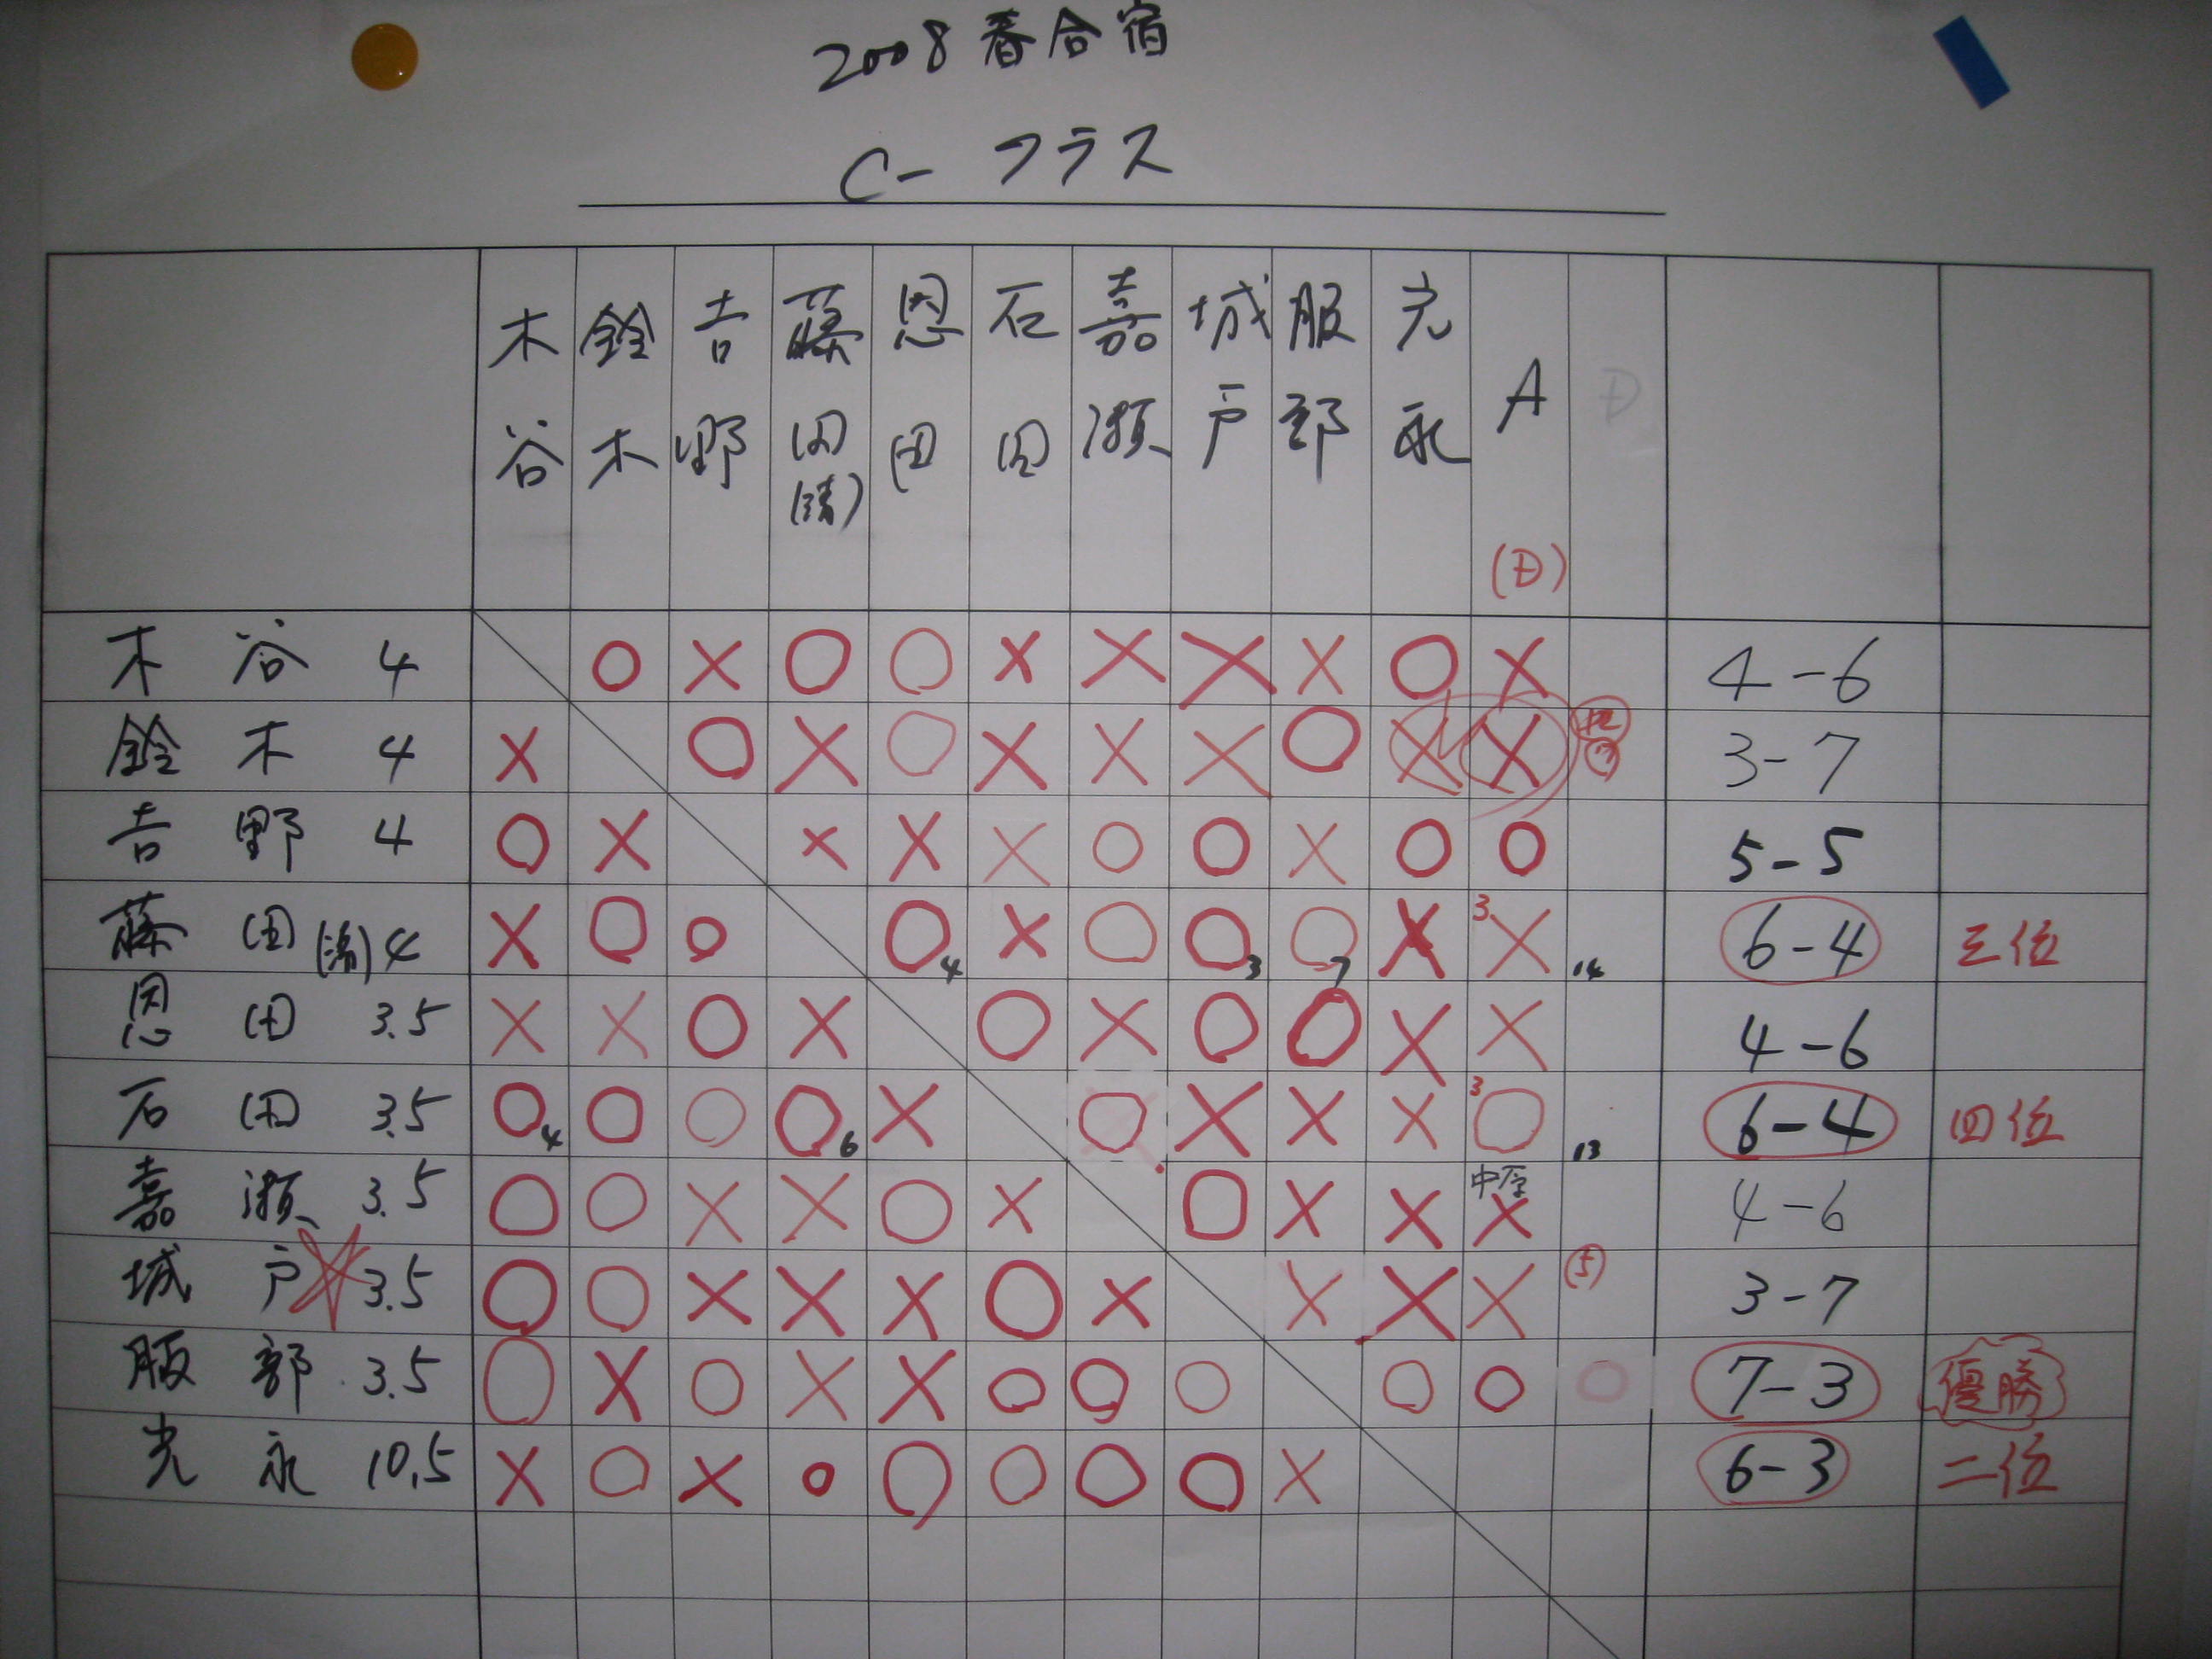 2008 春合宿
C-クラス
木谷 鈴木 吉野 藤田(清) 恩田 石田 嘉瀬 城戸 服部 光永 A (D) D
木谷 4 ○ × ○ ○ × × × × ○ × 4-6
鈴木 4 × ○ × ○ × × × ○ × × 3-7
吉野 4 ○ × × × × ○ ○ × ○ ○ 5-5
藤田(清) 4 × ○ ○ ○4 × ○ ○3 ○7 × 3× 14 6-4 三位
恩田 3.5 × × ○ × ○ × ○ ○ × × 4-6
石田 3.5 ○4 ○ ○ ○6 × ○ × × × 3○ 13 6-4 四位
嘉瀬 3.5 ○ ○ × × ○ × ○ × × 中原 × 4-6
城戸 3.5 ○ ○ × × × ○ × × × × (5) 3-7
服部 3.5 ○ × ○ × × ○ ○ ○ ○ ○ ○ 7-3 優勝
光永 10.5 × ○ × ○ ○ ○ ○ ○ × 6-3 二位